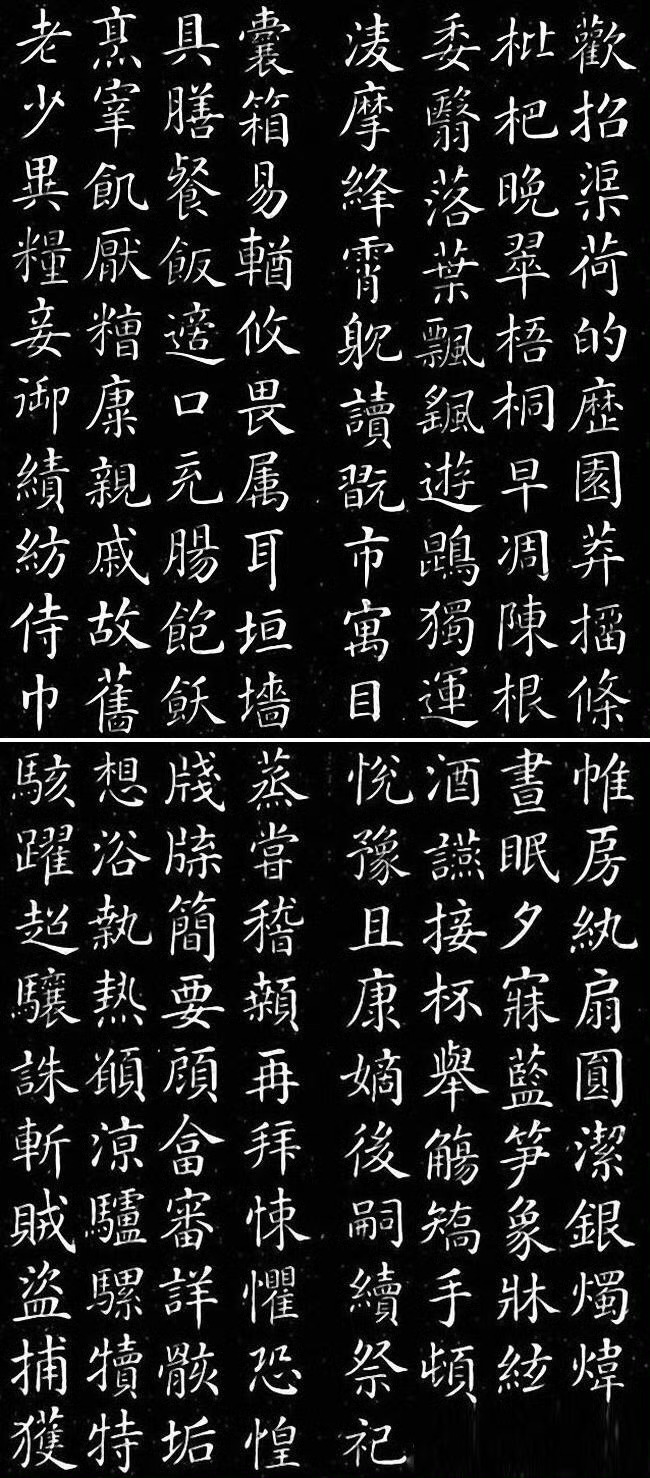 歡招渠荷的歷園莽㨨條
枇杷晚翠梧桐早凋陳根
委翳落葉飄颻遊鵾獨運
凌摩絳霄躭讀翫市寓目
囊箱易輶攸畏属耳垣墻
具膳餐飯適口充腸飽飫
烹宰飢厭糟糠親戚故舊
老少異糧妾御績紡侍巾
帷房紈扇圓潔銀燭煒
晝眠夕寐藍笋象牀絃
酒讌接杯舉觴矯手頓
悅豫且康嫡後嗣續祭祀
蒸嘗稽顙再拜悚懼恐惶
牋牒簡要顧畣審詳骸垢
想浴執熱願涼驢騾犢特
駭躍超驤誅斬賊盜捕獲